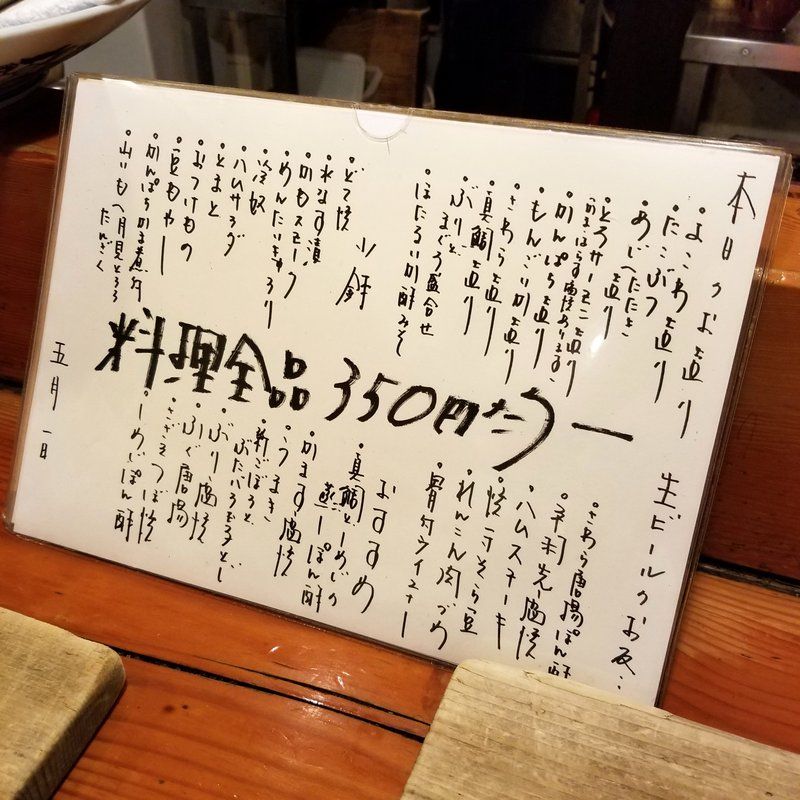 本日のお造り
・よこわ造り
・たこぶつ造り
・あじへたたき
・とろサーモン造り
・かんぱち造り
・もんごいか造り
・さわら造り
・真鯛造り
・ぶりと
まぐろ盛合せ
・ほたるいか酢みそ
小鉢
・どて焼
・水なす漬
・かもスモーク
・めんたいきゅうり
・冷奴
・ハムサラダ
・とまと
・おつけもの
・豆もやし
・かんぱちかま煮付
・山いもへ月見とろろ
たんざく
料理全品350円だうー
生ビールのお友…
・さわら唐揚ぽん酢
・手羽先塩焼
・ハムステーキ
・焼そら豆
・れんこん肉づめ
・骨付ウインナー
おすすめ
・真鯛としめじの
蒸しぽん酢
・かます塩焼
・うまき
・新ごぼうと
ぶたバラ
・ぶり塩焼
・ふぐ唐揚
・さざえつぼ焼
・しめじぽん酢
五月一日